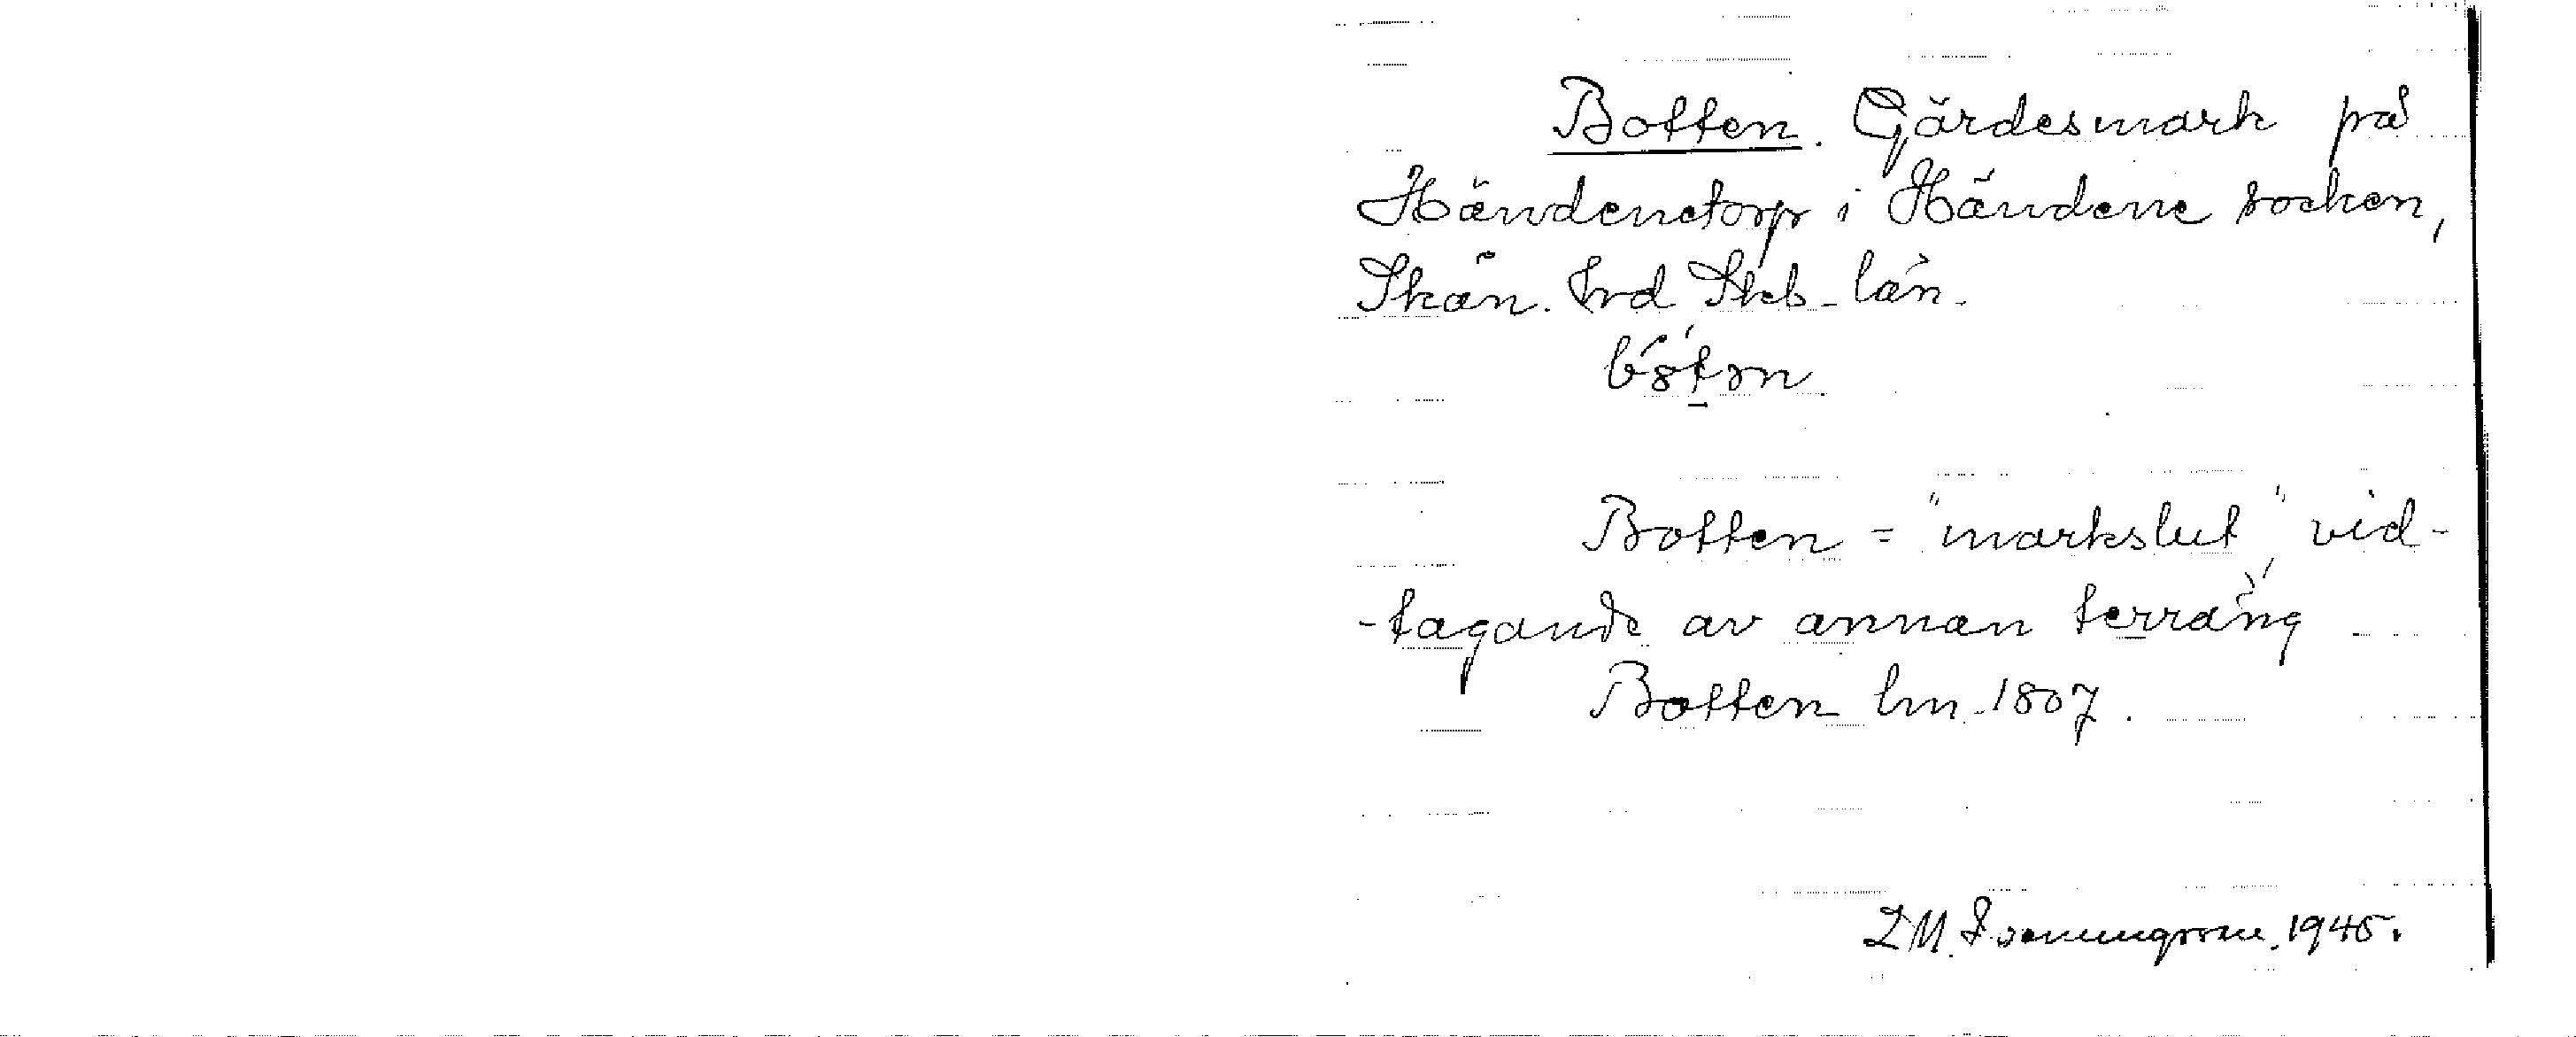 Botten. Gärdesmark på
Händenetorp i Händene socken,
Skån. hrd Skb-län.
Botten = "markslut", vid-
-tagande av annan terräng
Botten lm. 1807.
1945.